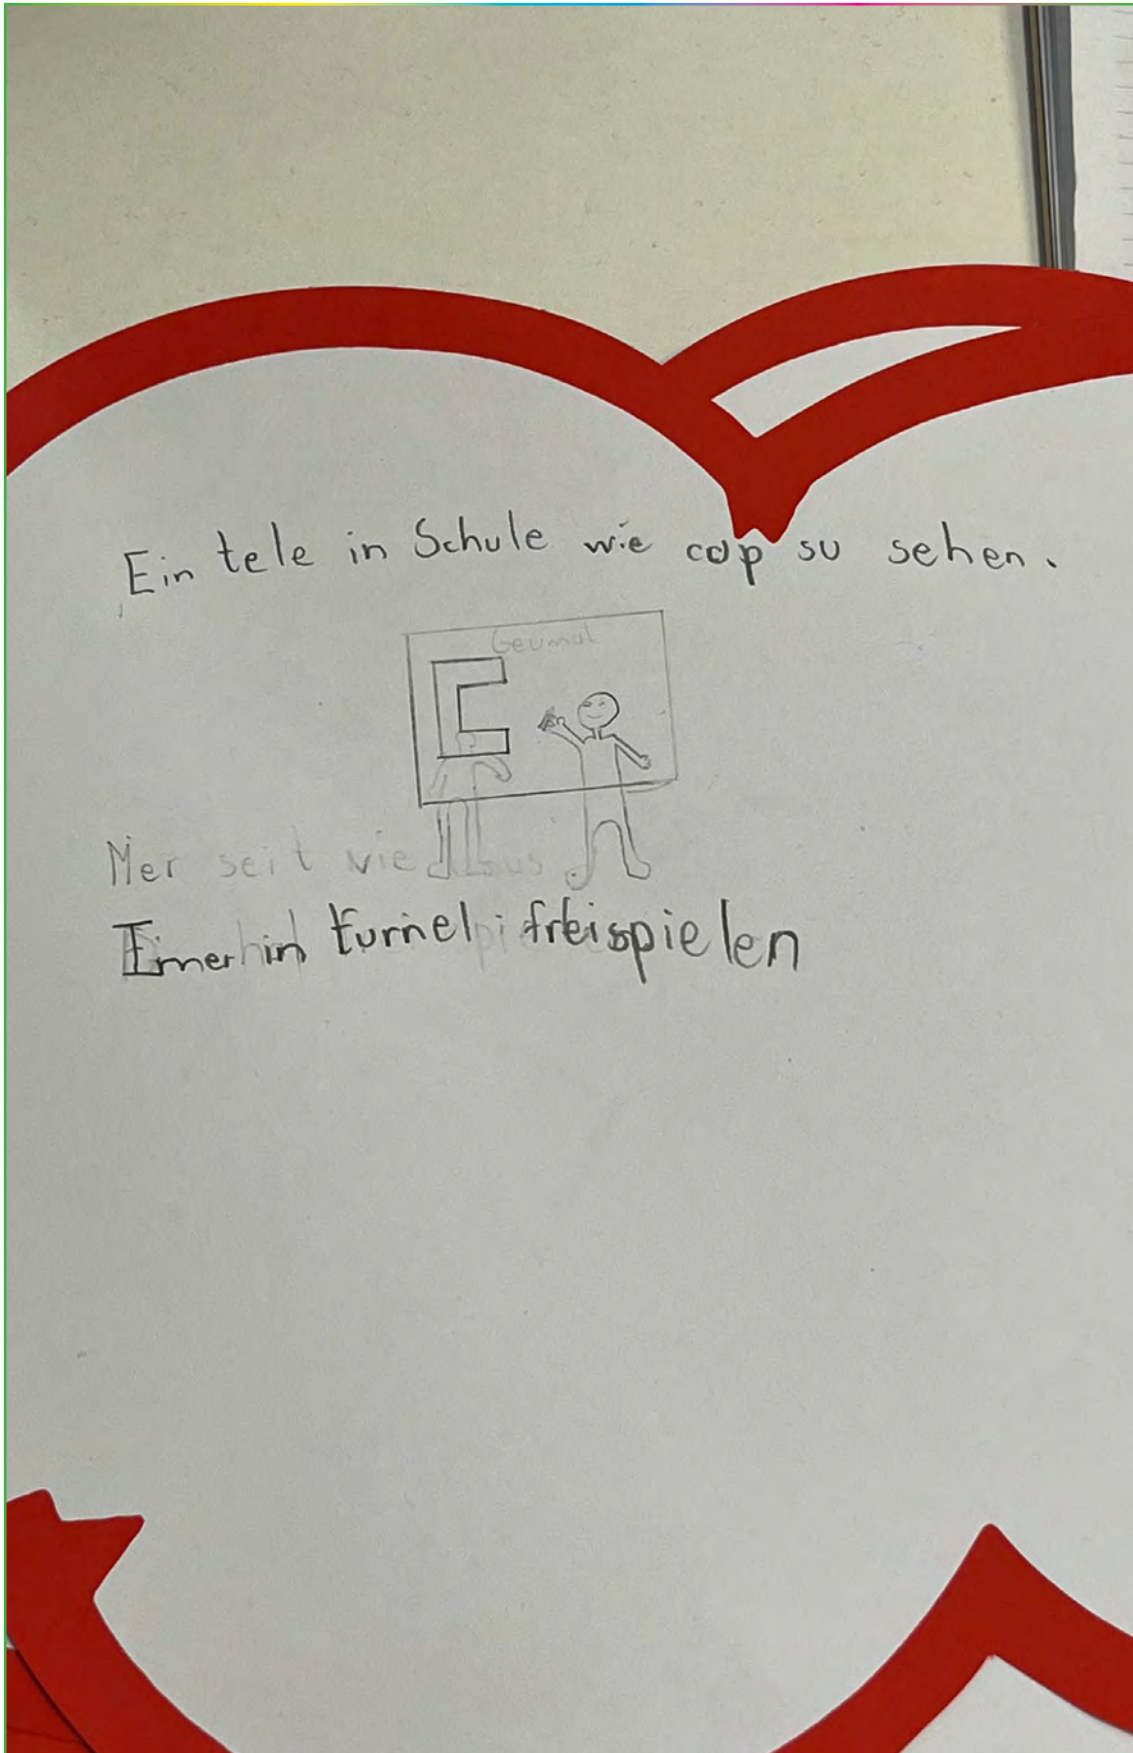 Ein tele in Schule wie cop su sehen.
Geumat
Mer seit vie aus
Imer in turnel freispielen